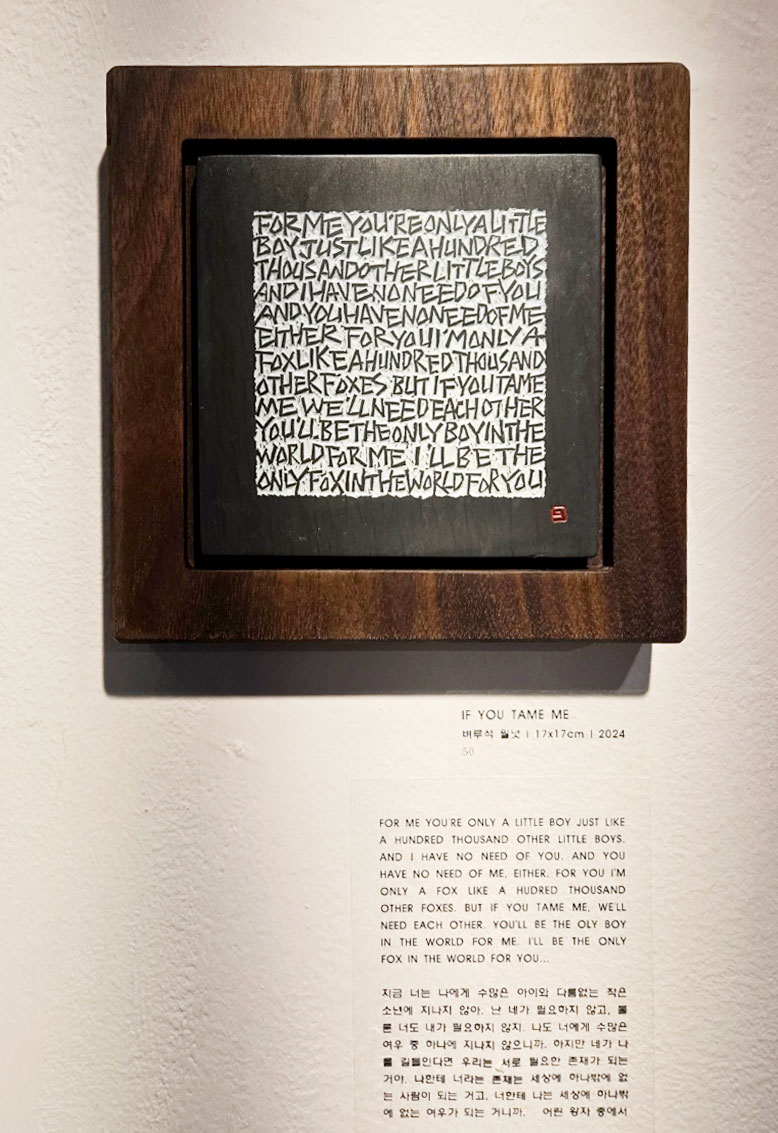 FOR ME YOU'RE ONLY A LITTLE
BOY JUST LIKE A HUNDRED
THOUSAND OTHER LITTLE BOYS
AND I HAVE NO NEED OF YOU
AND YOU HAVE NO NEED OF ME
EITHER FOR YOU I'M ONLY A
FOX LIKE A HUNDRED THOUSAND
OTHER FOXES BUT IF YOU TAME
ME WE'LL NEED EACH OTHER
YOU'LL BE THE ONLY BOY IN THE
WORLD FOR ME I'LL BE THE
ONLY FOX IN THE WORLD FOR YOU
IF YOU TAME ME
벼루석 월넛 | 17x17cm | 2024
50
FOR ME YOU'RE ONLY A LITTLE BOY JUST LIKE
A HUNDRED THOUSAND OTHER LITTLE BOYS.
AND I HAVE NO NEED OF YOU. AND YOU
HAVE NO NEED OF ME, EITHER. FOR YOU I'M
ONLY A FOX LIKE A HUDRED THOUSAND
OTHER FOXES. BUT IF YOU TAME ME, WE'LL
NEED EACH OTHER. YOU'LL BE THE OLY BOY
IN THE WORLD FOR ME. I'LL BE THE ONLY
FOX IN THE WORLD FOR YOU...
지금 너는 나에게 수많은 아이와 다름없는 작은
소년에 지나지 않아. 난 네가 필요하지 않고, 물
론 너도 내가 필요하지 않지. 나도 너에게 수많은
여우 중 하나에 지나지 않으니까. 하지만 네가 나
를 길들인다면 우리는 서로 필요한 존재가 되는
거야. 나한테 너라는 존재는 세상에 하나밖에 없
는 사람이 되는 거고, 너한테 나는 세상에 하나밖
에 없는 여우가 되는 거니까. 어린 왕자 중에서